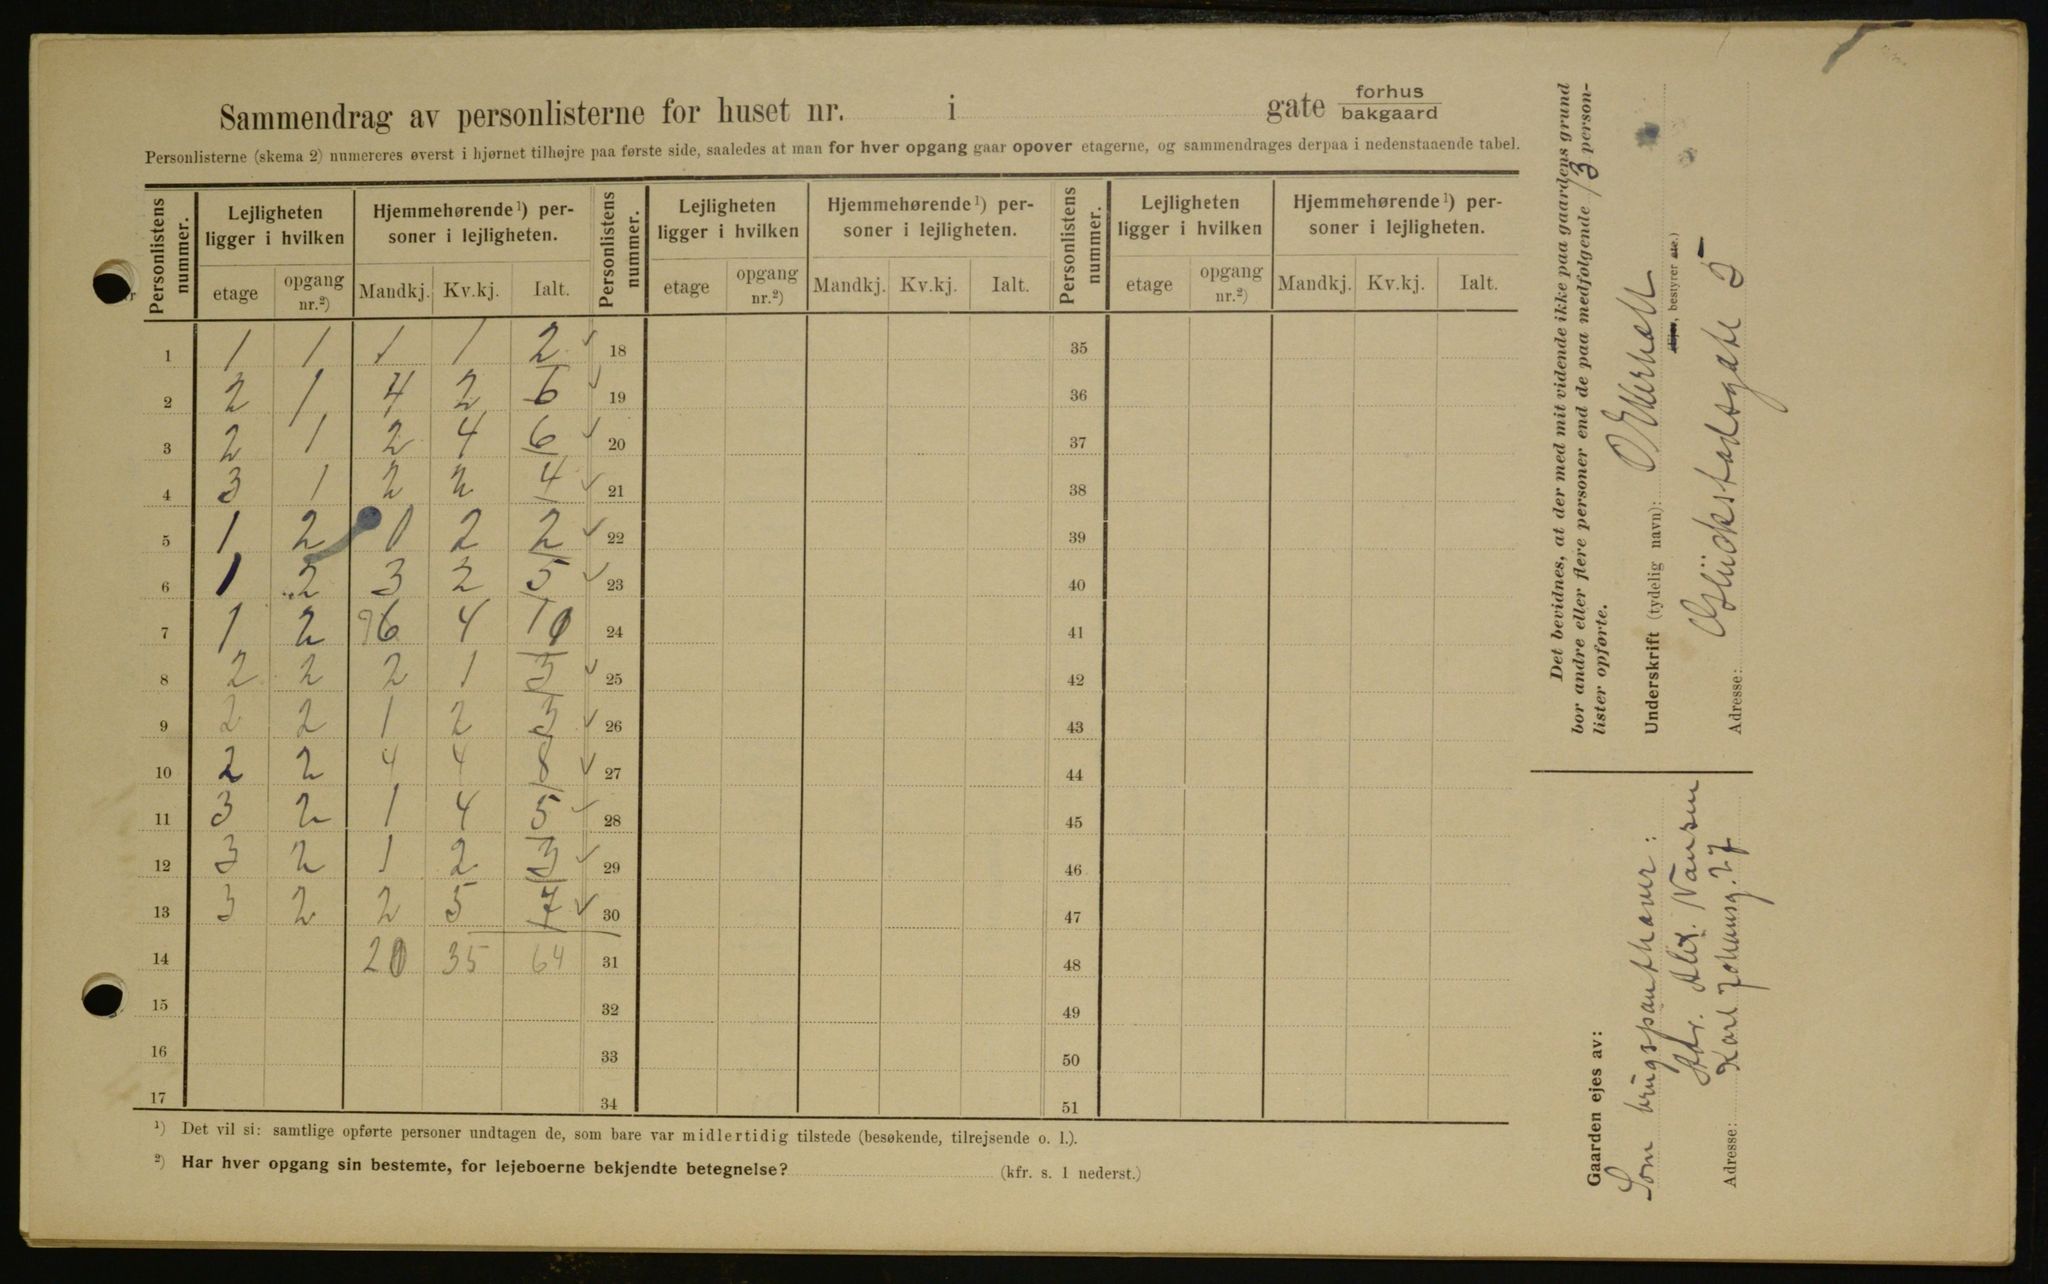 Sammendrag av personlisterne for huset nr. i gate forhus
bakgaard
Personlisterne (skema 2) numereres øverst i hjørnet tilhøjre paa første side, saaledes at man for hver opgang gaar opover etagerne, og sammendrages derpaa i nedenstaaende tabel.
Personlistens nummer. Lejligheten ligger i hvilken Hjemmehørende¹) personer i lejligheten. Personlistens nummer. Lejligheten ligger i hvilken Hjemmehørende¹) personer i lejligheten. Personlistens nummer. Lejligheten ligger i hvilken Hjemmehørende¹) personer i lejligheten.
etage opgang nr.²) Mandkj. Kv.kj. Ialt. etage opgang nr.²) Mandkj. Kv.kj. Ialt. etage opgang nr.²) Mandkj. Kv.kj. Ialt.
1 1 1 1 1 2 ✓ 18 35
2 2 1 4 2 6 ✓ 19 36
3 2 1 2 4 6 ✓ 20 37
4 3 1 2 2 4 ✓ 21 38
5 1 2 0 2 2 ✓ 22 39
6 1 2 3 2 5 ✓ 23 40
7 1 2 6 4 10 24 41
8 2 2 2 1 3 ✓ 25 42
9 2 2 1 2 3 ✓ 26 43
10 2 2 4 4 8 ✓ 27 44
11 3 2 1 4 5 ✓ 28 45
12 3 2 1 2 3 ✓ 29 46
13 3 2 2 5 7 ✓ 30 47
14 20 35 64 31 48
15 32 49
16 33 50
17 34 51
¹) Det vil si: samtlige opførte personer undtagen de, som bare var midlertidig tilstede (besøkende, tilrejsende o. l.).
²) Har hver opgang sin bestemte, for lejeboerne bekjendte betegnelse? (kfr. s. 1 nederst.)
Det bevidnes, at der med mit vidende ikke paa gaardens grund
bor andre eller flere personer end de paa medfølgende 13 person-
lister opførte.
Underskrift (tydelig navn):
bestyrer etc.)
Adresse: Glückstadsgate 5
Gaarden ejes av:
Som brugspanthaver:
Adr. Alex. Nansen
Adresse: Karl Johansg. 27